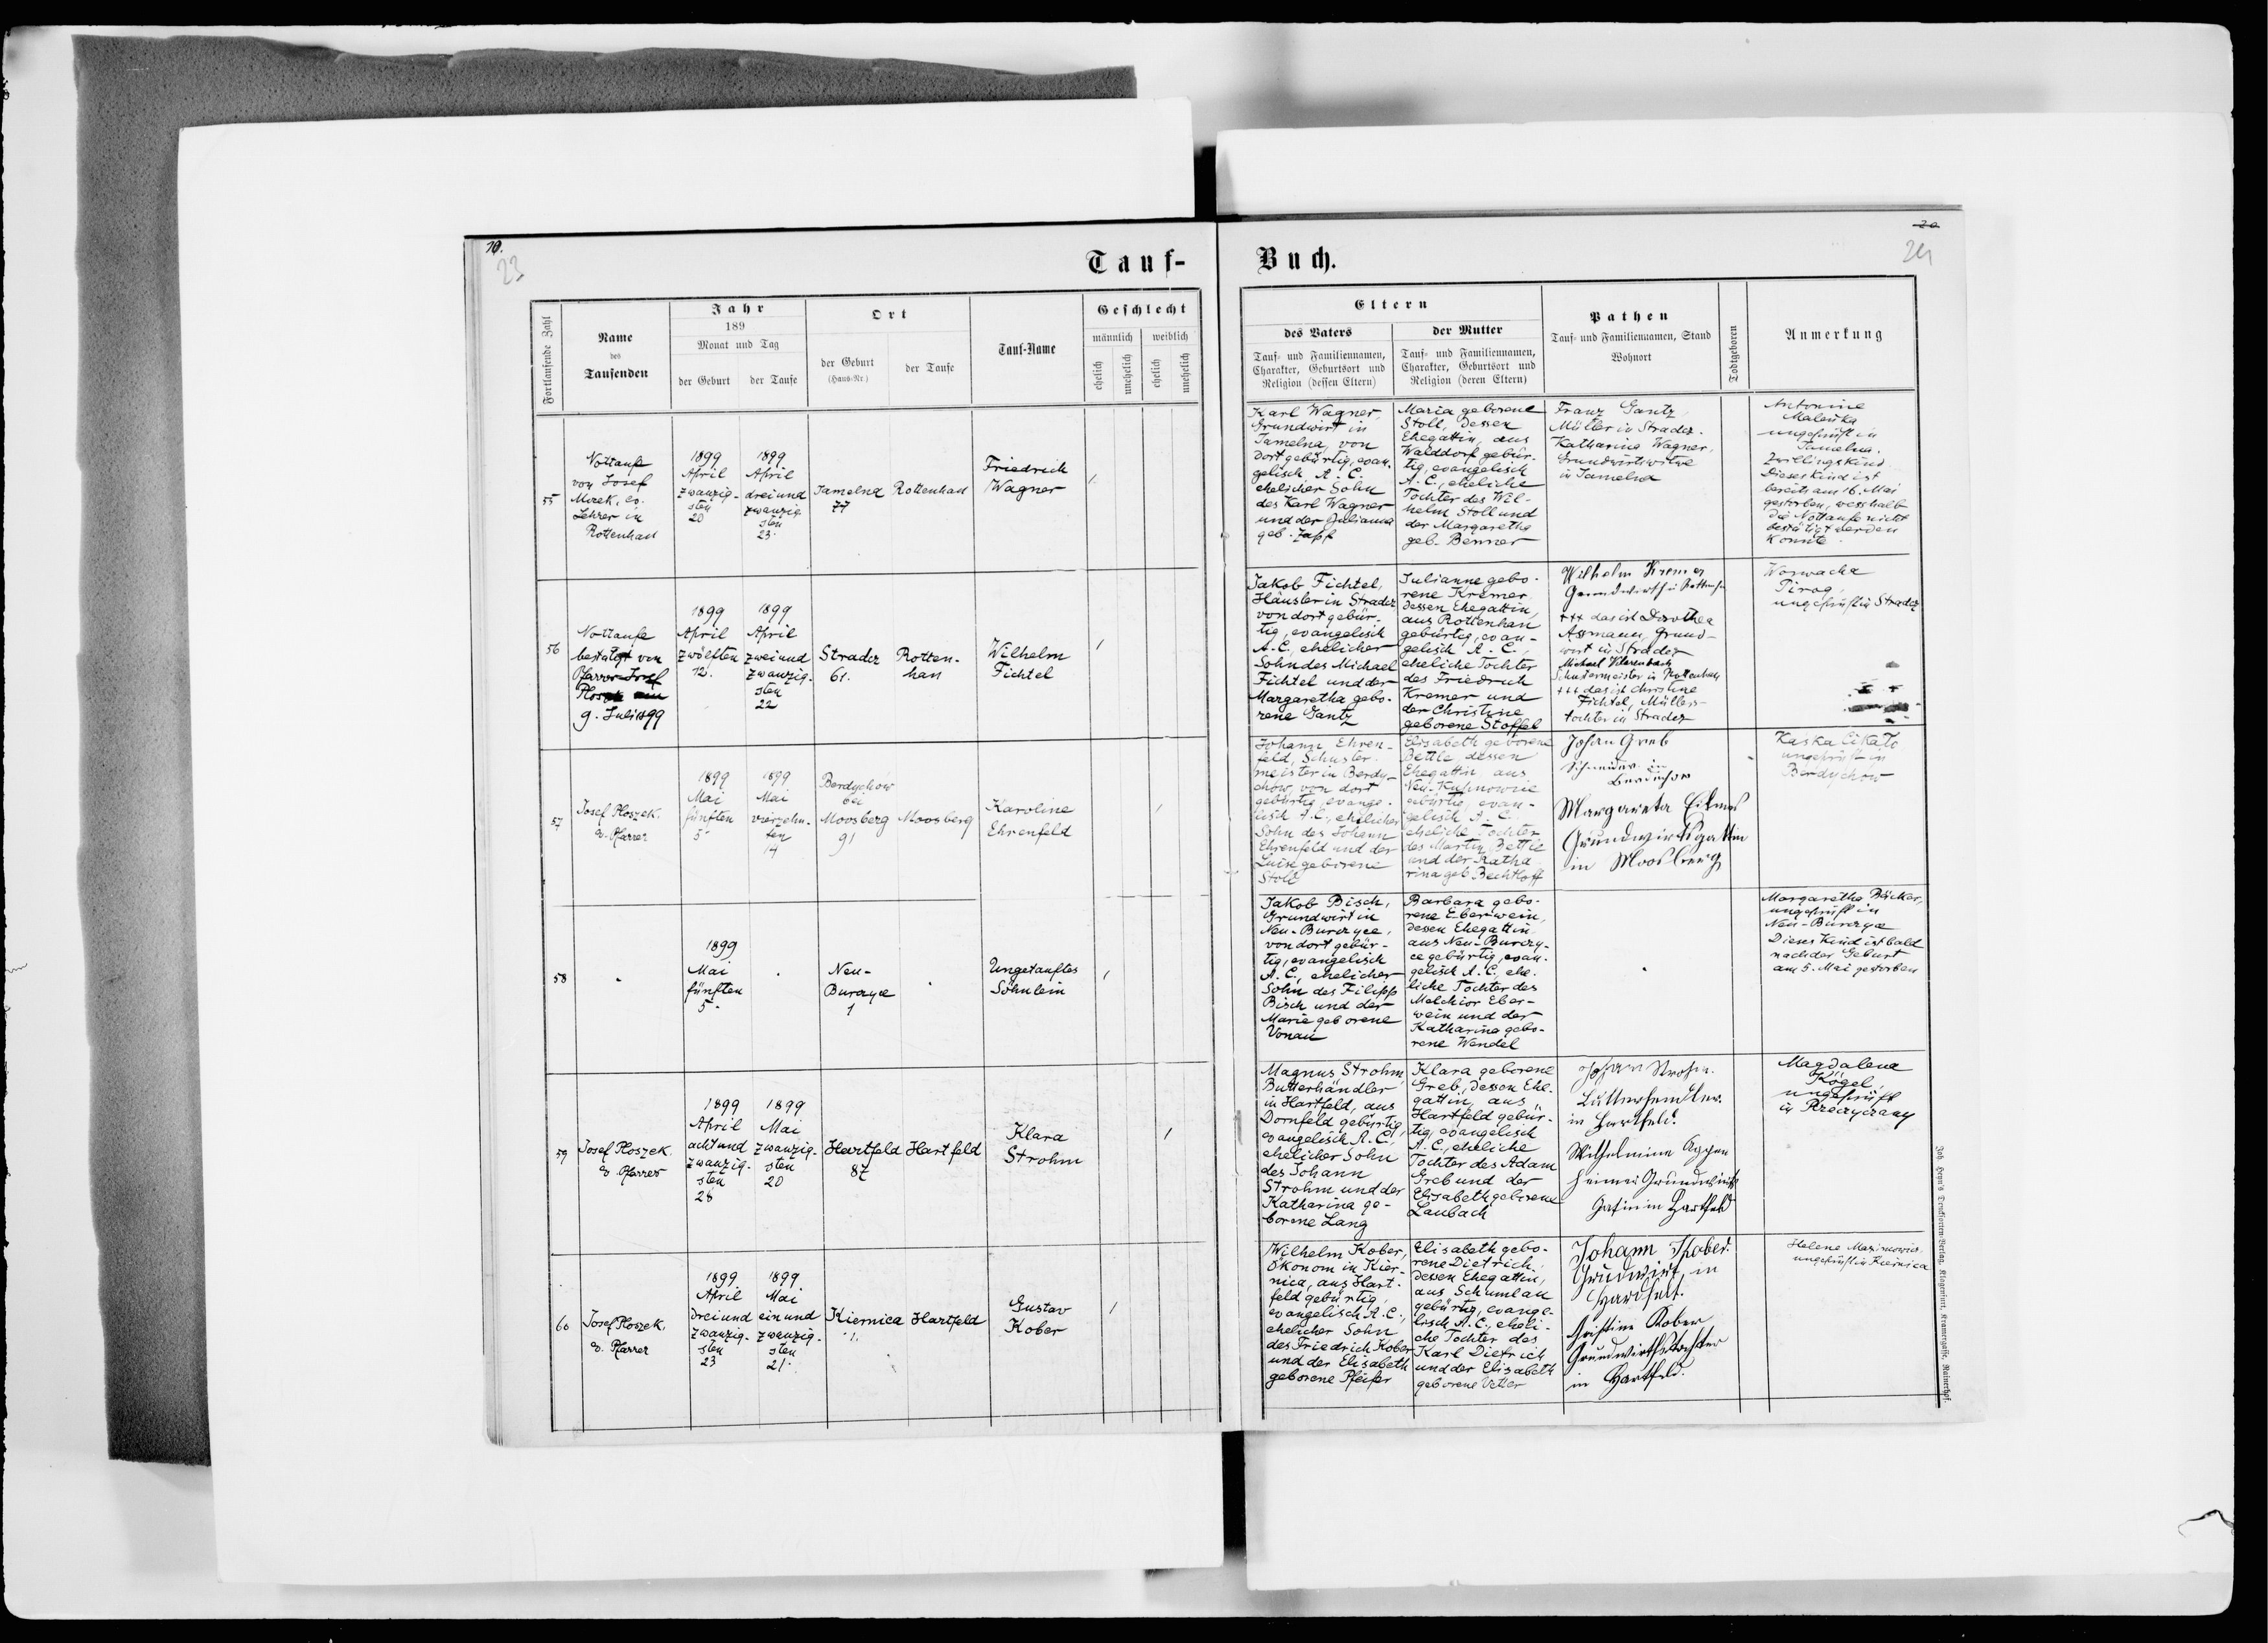 19.
23
20
24
Tauf-
Buch.
Fortlaufende Zahl
Name
des
Taufenden
Jahr
189
Monat und Tag
der Geburt
der Taufe
Ort
der Geburt
(Haus-Nr.)
der Taufe
Tauf-Name
Geschlecht
männlich
weiblich
ehelich
unehelich
ehelich
unehelich
Eltern
des Vaters
Tauf- und Familiennamen,
Charakter, Geburtsort und
Religion (dessen Eltern)
der Mutter
Tauf- und Familiennamen,
Charakter, Geburtsort und
Religion (deren Eltern)
Pathen
Tauf- und Familiennamen, Stand
Wohnort
Todtgeboren
Anmerkung
55
Nottaufe
von Josef
Mozek, ev.
Lehrer in
Rottenhan
1899
April
zwanzig-
sten
20
1899
April
dreiund
zwanzig
sten
23.
Jamelna
77
Rottenhan
Friedrich
Wagner
1.
Karl Wagner,
Grundwirt in
Jamelna, von
dort gebürtig, evan-
gelisch A. C.,
ehelicher Sohn
des Karl Wagner
und der Julianna
geb. Zapf
Maria geborene
Stoll, dessen
Ehegattin, aus
Walddorf gebür-
tig, evangelisch
A. C., eheliche
Tochter des Wil-
helm Stoll und
der Margaretha
geb. Benner
Franz Gantz,
Müller in Stradez.
Katharina Wagner,
Grundwirtswitwe
in Jamelna
Antonine
Maleńka
ungeprüft in
Jamelna.
Zwillingskind
Dieses Kind ist
bereits am 16. Mai
gestorben, wesshalb
die Nottaufe nicht
bestätigt werden
konnte.
56
Nottaufe
bestätigt von
Pfarrer Josef
9. Juli 1899
1899
April
zwölften
12.
1899
April
zweiund
zwanzig-
sten
22
Stradez
61.
Rotten-
han
Wilhelm
Fichtel
1
Jakob Fichtel,
Häusler in Stradez
von dort gebür-
tig, evangelisch
A. C., ehelicher
Sohn des Michael
Fichtel und der
Margaretha gebo-
rene Gantz
Julianne gebo-
rene Kremer
dessen Ehegattin,
aus Rottenhan
gebürtig, evan-
gelisch A. C.,
eheliche Tochter
des Friedrich
Kremer und
der Christine
geborene Stoffel
Wilhelm Kremer
Grundwirth in
+++ das ist Dorothea
Assmann, Grund-
wirt in Stradez
Michael
Schustermeister in Rottenhan
+++ das ist Christine
Fichtel, Müllers-
tochter in Stradez
Worwacha
Pirog,
ungeprüft in Stradez
57
Josef Ploszek,
ev. Pfarrer
1899
Mai
fünften
5
1899
Mai
vierzehn-
ten
14
Berdychow
Moosberg
91
Moosberg
Karoline
Ehrenfeld
1
Johann Ehren-
feld, Schuster-
meister in Berdy-
chow, von dort
gebürtig, evange-
lisch A. C., ehelicher
Sohn des Johann
Ehrenfeld und der
Luise geborene
Stoll
Elisabeth geborene
Bettle dessen
Ehegattin, aus
Neu-Kuhnowice
gebürtig, evan-
gelisch A. C.
eheliche Tochter
des Martin Bettle
und der Katha
rina geb. Bechtloff
Johan Greb
Schneider in
Berdichow
Margareta
Grundwirtsgattin
in Moosberg
Kaska
ungeprüft in
Berdychow
58
1899
Mai
fünften
5.
Neu-
Burczyce
1
Ungetauftes
Söhnlein
1
Jakob Bisch,
Grundwirt in
Neu-Burczyce,
von dort gebür-
tig, evangelisch
A. C., ehelicher
Sohn des Filipp
Bisch und der
Marie geborene
Vonau
Barbara gebo-
rene Eberwein,
dessen Ehegattin
aus Neu-Burczy-
ce gebürtig, evan-
gelisch A. C., ehe-
liche Tochter des
Melchior Eber-
wein und der
Katharina gebo-
rene Wendel
Margaretha Bäcker,
ungeprüft in
Neu-Burczyce
Dieses Kind ist bald
nach der Geburt
am 5. Mai gestorben
59
Josef Ploszek,
ev. Pfarrer
1899
April
achtund
zwanzig-
sten
28
1899
Mai
zwanzig-
sten
20
Hartfeld
87
Hartfeld
Klara
Strohm
1
Magnus Strohm,
Butterhändler
in Hartfeld, aus
Dornfeld gebürtig,
evangelisch A. C.,
ehelicher Sohn
des Johann
Strohm und der
Katharina ge-
borene Lang
Klara geborene
Greb, dessen Ehe-
gattin, aus
Hartfeld gebür-
tig, evangelisch
A. C., eheliche
Tochter des Adam
Greb und der
Elisabeth geborene
Laubach
Johann Strohm.
Butterhendler
in Hartfeld.
Wilhelmine Oppen
heimer Grundwirts
Gatin in Hartfeld
Magdalena
Kögel,
ungeprüft
in Rzeczyczany
60
Josef Ploszek,
ev. Pfarrer
1899
April
dreiund
zwanzig-
sten
23
1899
Mai
einund
zwanzig-
sten
21.
Kiernica
1.
Hartfeld
Gustav
Kober
1
Wilhelm Kober,
Ökonom in Kier-
nica, aus Hart-
feld gebürtig,
evangelisch A. C.,
ehelicher Sohn
des Friedrich Kober
und der Elisabeth
geborene Pfeifer
Elisabeth gebo-
rene Dietrich,
dessen Ehegattin,
aus Schumlau
gebürtig, evange-
lisch A. C., eheli-
che Tochter des
Karl Dietrich
und der Elisabeth
geborene Vetter
Johann
Grundwirt in
Hartfelt.
Christine Kober
Grundwirthstochter
in Hartfeld.
Helene Maximowicz
ungeprüft in Kiernica
Joh. Heyn's Drucksorten-Verlag, Klagenfurt, Kramergasse, Rainerhof.